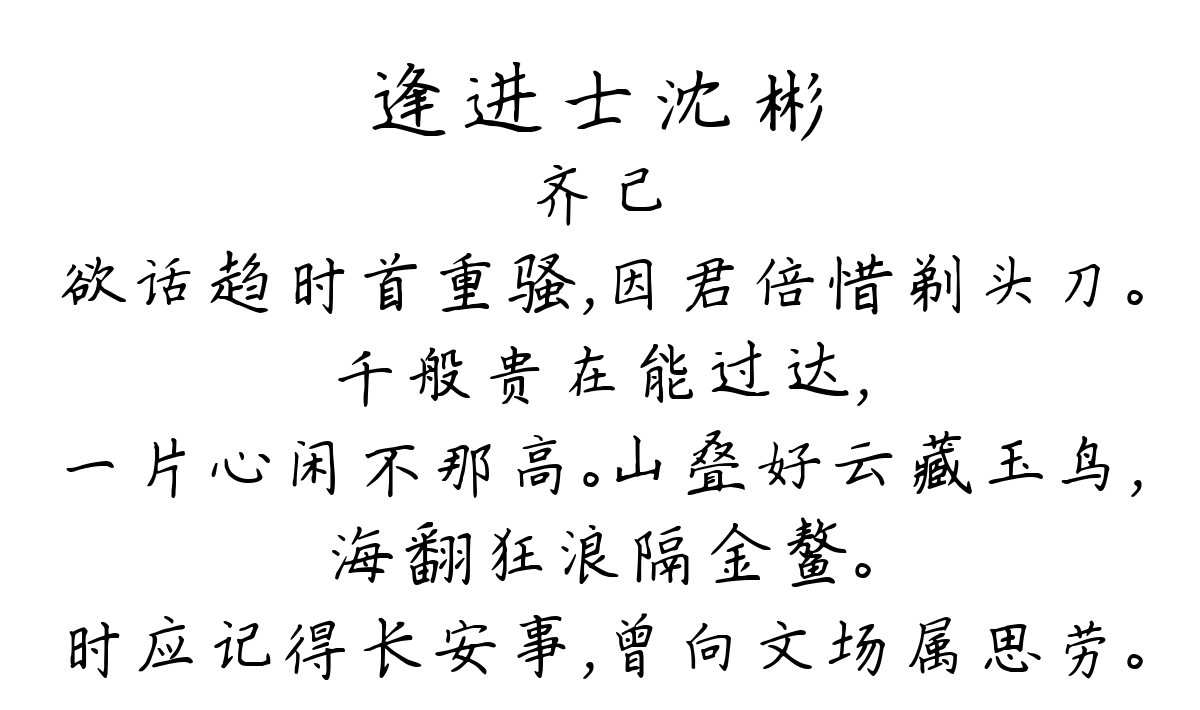 逢进士沈彬
齐己
欲话趋时首重骚,因君倍惜剃头刀。
千般贵在能过达,
一片心闲不那高。山叠好云藏玉鸟,
海翻狂浪隔金鳌。
时应记得长安事,曾向文场属思劳。